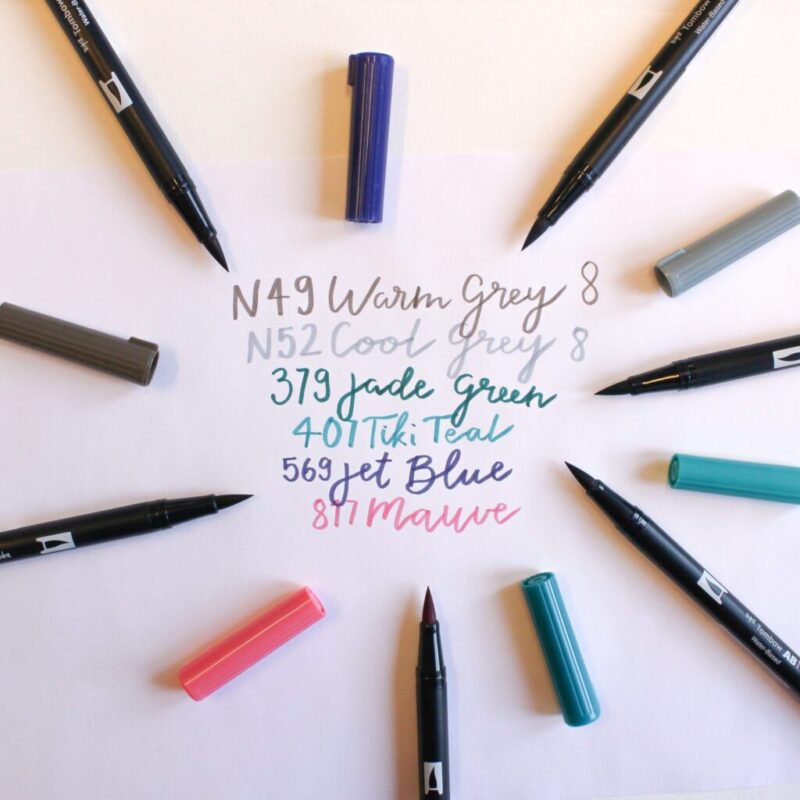 N49 Warm Grey 8
N52 Cool Grey 8
379 Jade Green
407 Tiki Teal
569 Jet Blue
817 Mauve
Tombow
Tombow
Water-Based
Tombow AB
Water-Based